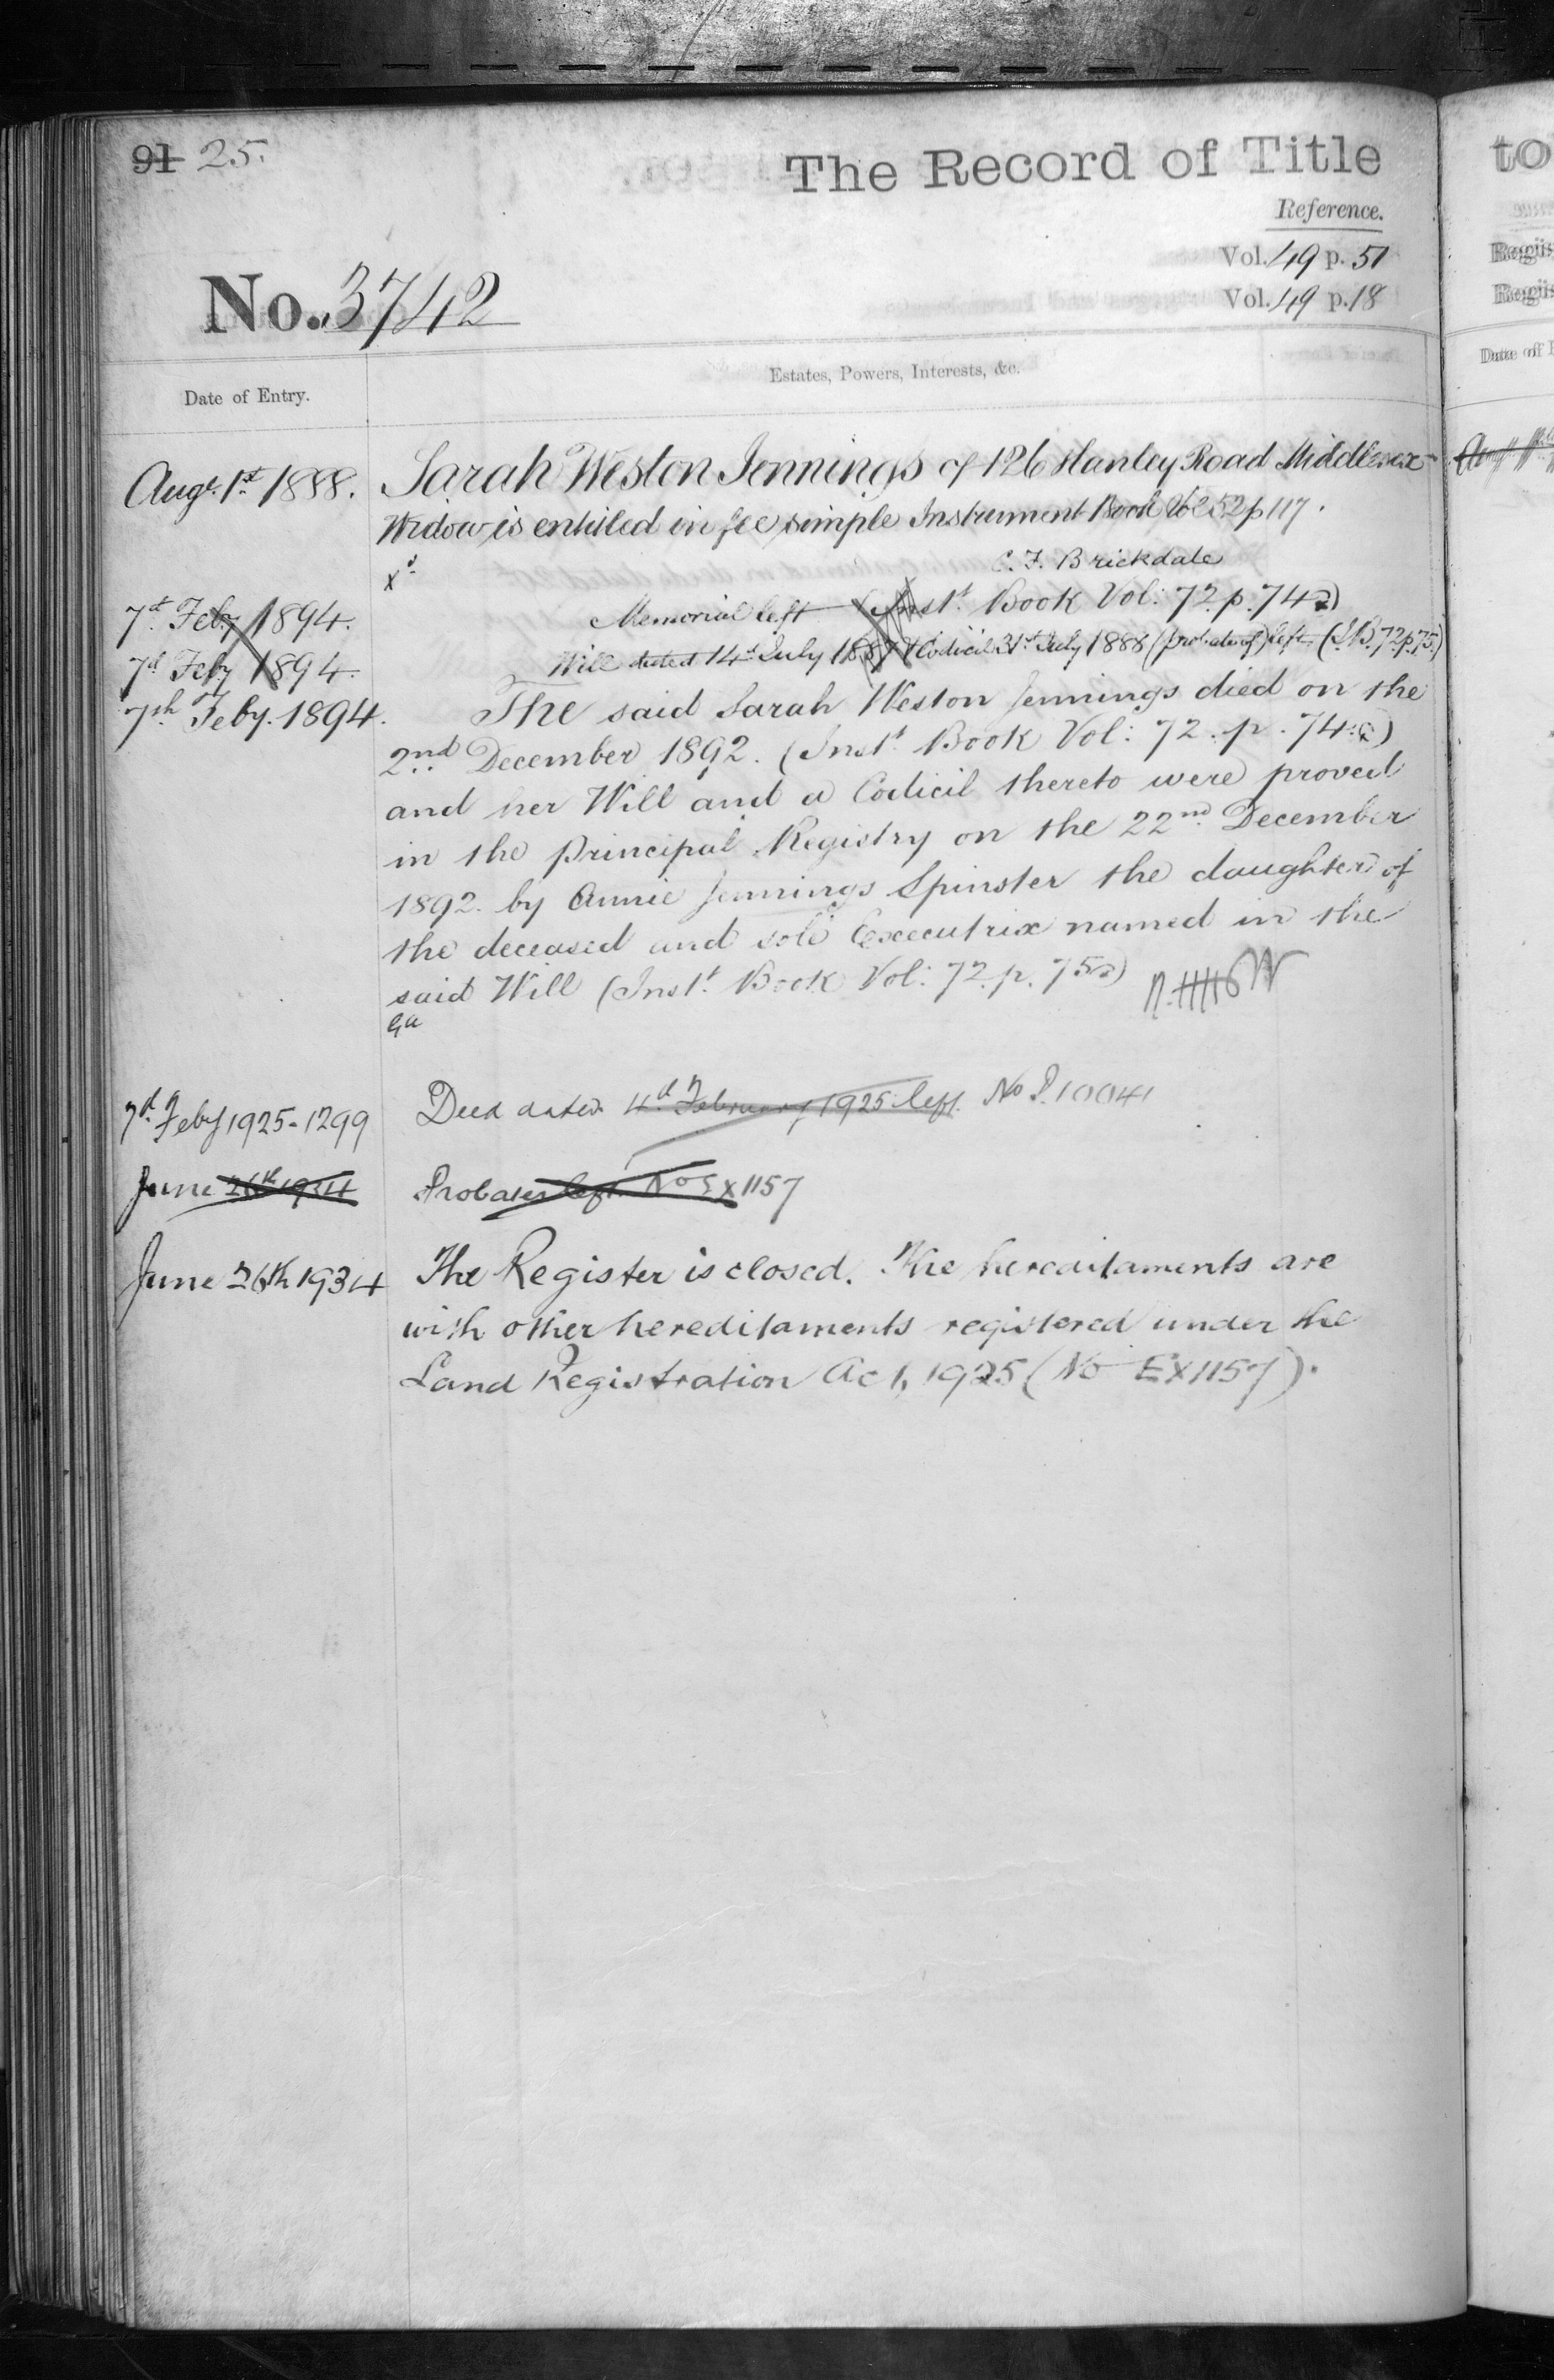 91 25.
The Record of Title
Reference.
Vol. 49 p. 51
Vol. 49 p. 18
No. 3742
Date of Entry.
Estates, Powers, Interests, &c.
Augt. 1st 1888. Sarah Weston Jennings of 126 Hanley Road Middlesex
Widow is entitled in fee simple Instrument Book 52 p 117.
C. F. Brickdale
7th Feby 1894. Memorial left (Inst. Book Vol: 72. p. 74)
7th Feby 1894. Will dated 14th July 1887 & Codicil 31st July 1888 (probate of) left (I.B. 72 p. 75)
7th Feby. 1894. The said Sarah Weston Jennings died on the
2nd December 1892. (Inst. Book Vol: 72. p. 74)
and her Will and a Codicil thereto were proved
in the Principal Registry on the 22nd December
1892. by Annie Jennings Spinster the daughter of
the deceased and sole Executrix named in the
said Will (Inst. Book Vol: 72. p. 75)
7th Feby 1925 - 1299 Deed dated 4th February, 1925 left. No P. 10041
June 26th 1934 Probates left No EX 1157
June 26th 1934 The Register is closed. The hereditaments are
with other hereditaments registered under the
Land Registration Act, 1925 (No EX1157).
to
Regis
Regis
Date of